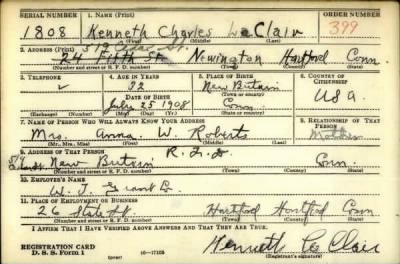 SERIAL NUMBER 1. NAME (Print) ORDER NUMBER
1808 Kenneth Charles LeClair 399
(First) (Middle) (Last)
2. ADDRESS (Print)
24 Fifth St. Newington Hartford Conn.
(Number and street or R. F. D. number) (Town) (County) (State)
3. TELEPHONE 4. AGE IN YEARS 5. PLACE OF BIRTH 6. COUNTRY OF CITIZENSHIP
32 New Britain
DATE OF BIRTH (Town or county)
July 25 1908 Conn. USA
(Exchange) (Number) (Mo.) (Day) (Yr.) (State or country)
7. NAME OF PERSON WHO WILL ALWAYS KNOW YOUR ADDRESS 8. RELATIONSHIP OF THAT PERSON
Mrs. Anna W. Roberts Mother
(Mr., Mrs., Miss) (First) (Middle) (Last)
9. ADDRESS OF THAT PERSON R.F.D.
New Britain Conn.
(Number and street or R. F. D. number) (Town) (County) (State)
10. EMPLOYER'S NAME
W. T. Grant Co.
11. PLACE OF EMPLOYMENT OR BUSINESS
26 State St. Hartford Hartford Conn
(Number and street or R. F. D. number) (Town) (County) (State)
I AFFIRM THAT I HAVE VERIFIED ABOVE ANSWERS AND THAT THEY ARE TRUE.
REGISTRATION CARD
D. S. S. Form 1 (over) 16—17105 Kenneth Le Clair
(Registrant's signature)